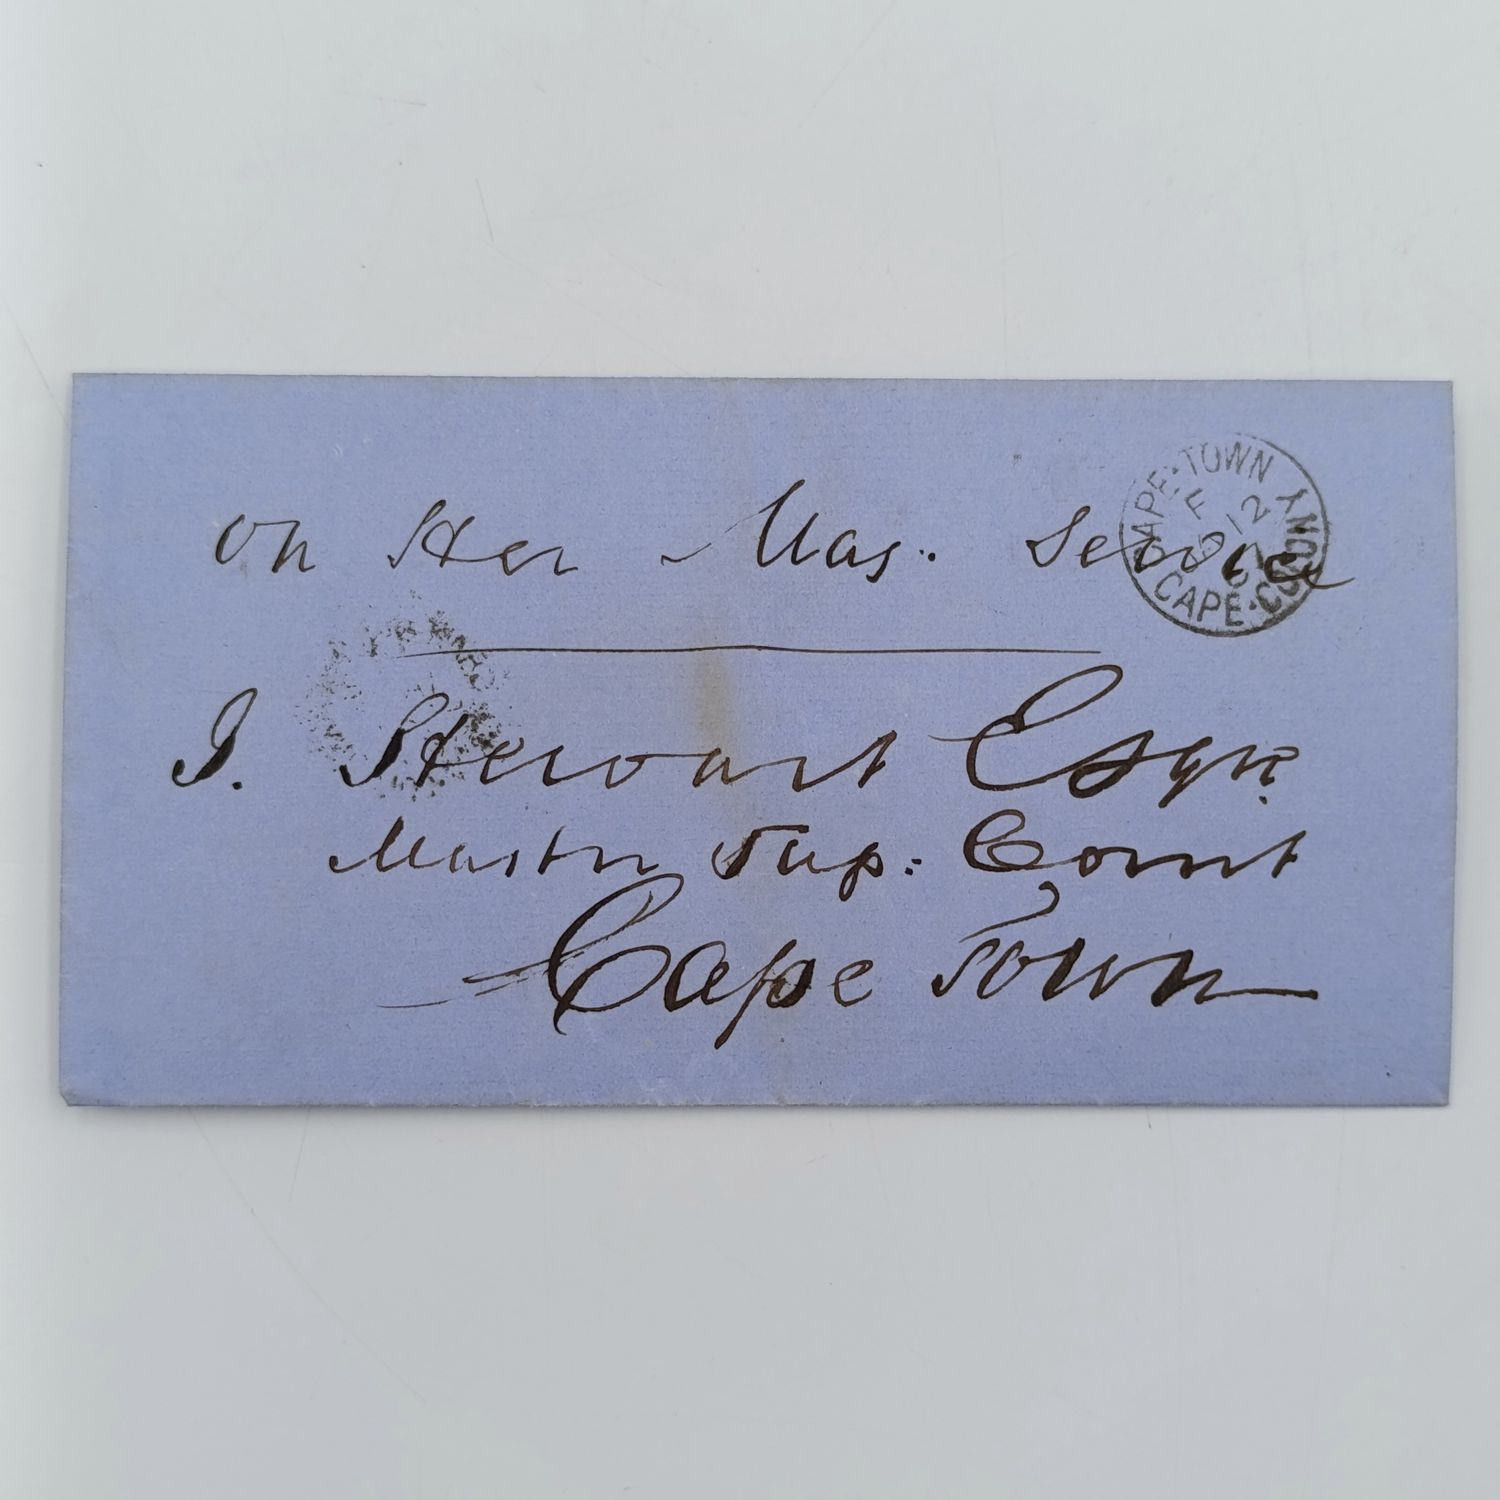 On Her Mas: Service
CAPE·TOWN
F
12
CAPE·COLONY
J. Stewart Esqre.
Master Sup: Court
Cape Town